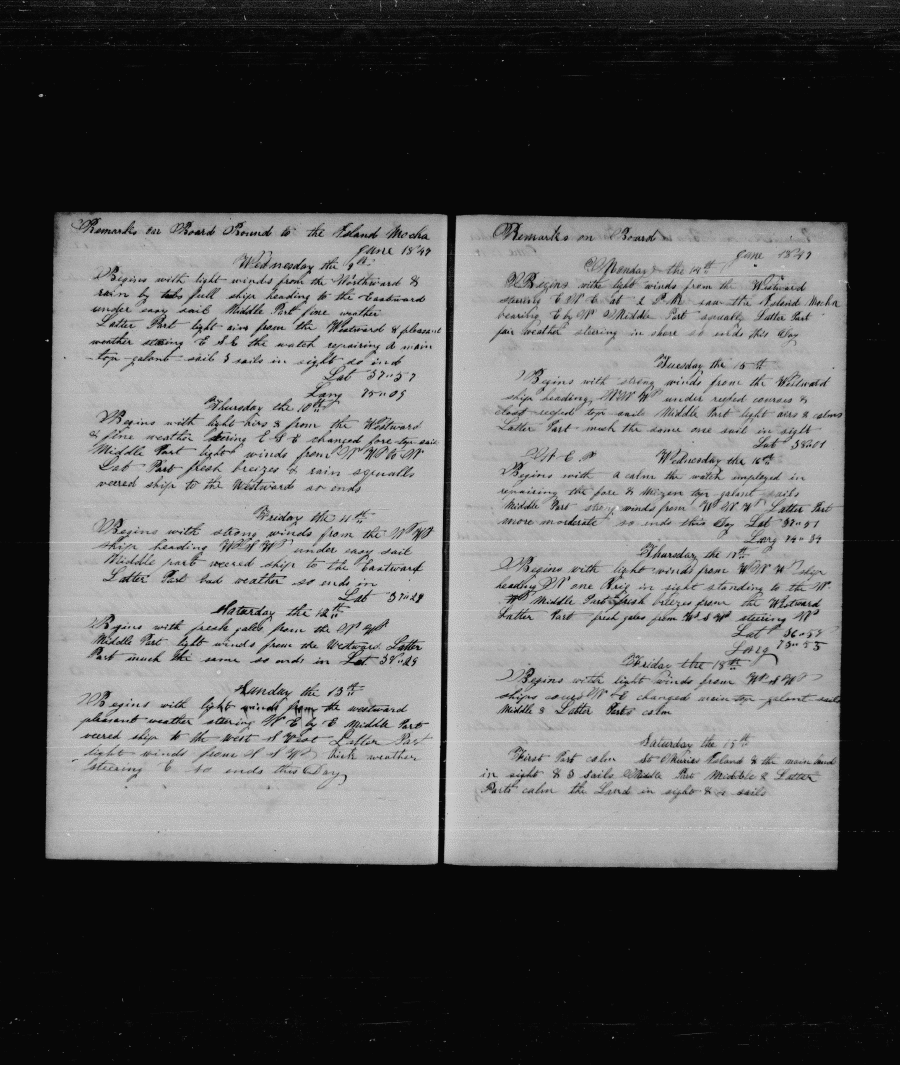 Remarks on Board Bound to the Island Mocha
June 1847
Wednesday the 9th
Begins with light winds from the Northward &
rain by full ship heading to the Eastward
under easy sail Middle Part fine weather
Latter Part light airs from the Westward & pleasant
weather steering E S E the watch repairing a main
top galant sail 3 sails in sight so ends
Lat 37"57
Long 75"09
Thursday the 10th
Begins with light airs & from the Westward
& fine weather steering E S E changed fore top sail
Middle Part light winds from N W
Lat Part fresh breizes & rain squalls
veered ship to the Westward so ends
Friday the 11th
Begins with strong winds from the N W
ship heading W S W under easy sail
Middle part veered ship to the Eastward
Latter Part bad weather so ends in
Lat 37"28
Saturday the 12th
Begins with fresh gales from the N W
Middle Part light winds from the Westward Latter
Part much the same so ends in Lat 38"29
Sunday the 13th
Begins with light winds from the westward
pleasant weather stering N E by E Middle Part
veered ship to the West S West Latter Part
light winds from thick weather
steering E so ends this Day
Remarks on Board
June 1847
Monday the 14th
Begins with light winds from the Westward
steering E N E at 2 P M saw the Island Mocha
bearing E by N Middle Part squaly Latter Part
fair weather steering in shore so ends this Day
Tuesday the 15th
Begins with strong winds from the Westward
ship heading N N W under reefed courses &
close reefed top sails Middle Part light aers & calms
Latter Part much the same one sail in sight
Lat
Wednesday the 16th
Begins with a calm the watch employed in
repairing the fore & Mizen top galant sails
Middle Part strong winds from W N W Latter Part
more moderate so ends this Day Lat 37"51
Long 74"34
Thursday the 17th
Begins with light winds from W N W ship
heading N one Brig in sight standing to the N
W Middle Part fresh breizes from the Westward
Latter Part fresh gales from W S W steering N
Lat 36"58
Long 73"55
Friday the 18th
Begins with light winds from W S W
ships course N E changed main top galant sails
Middle & Latter Parts calm
Saturday the 19th
First Part calm St Maries Island & the main land
in sight & 3 sails Middle Part Middle & Latter
Parts calm the Land in sight & 4 sails